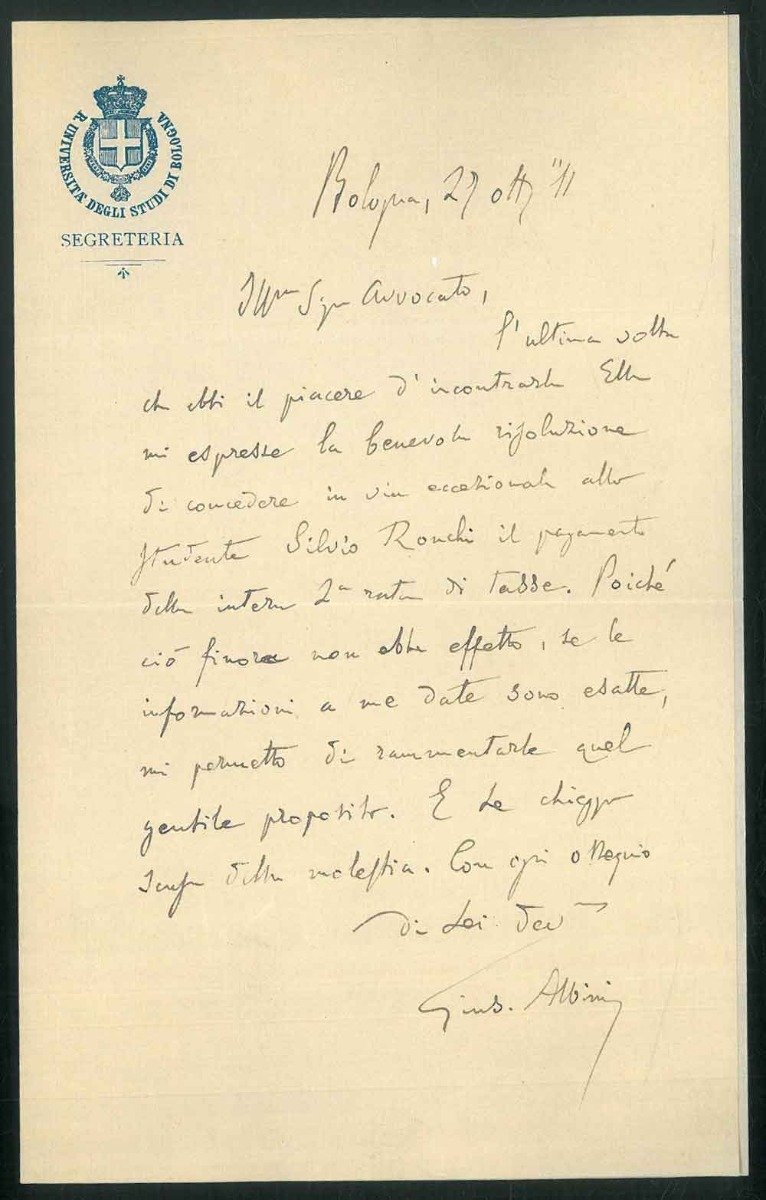 R. UNIVERSITA' DEGLI STUDI DI BOLOGNA
SEGRETERIA
Bologna, 27 ott. '11
Ill.mo Sign. Avvocato,
l'ultima volta
che ebbi il piacere d'incontrarla Ella
mi espresse la benevola risoluzione
di concedere in via eccezionale allo
studente Silvio Ronchi il pagamento
della intera 2a rata di tasse. Poiché
ciò finora non ebbe effetto, se le
informazioni a me date sono esatte,
mi permetto di rammentarle quel
gentile proposito. E Le chieggo
scusa della molestia. Con ogni ossequio
di Lei dev.mo
Gius. Albini